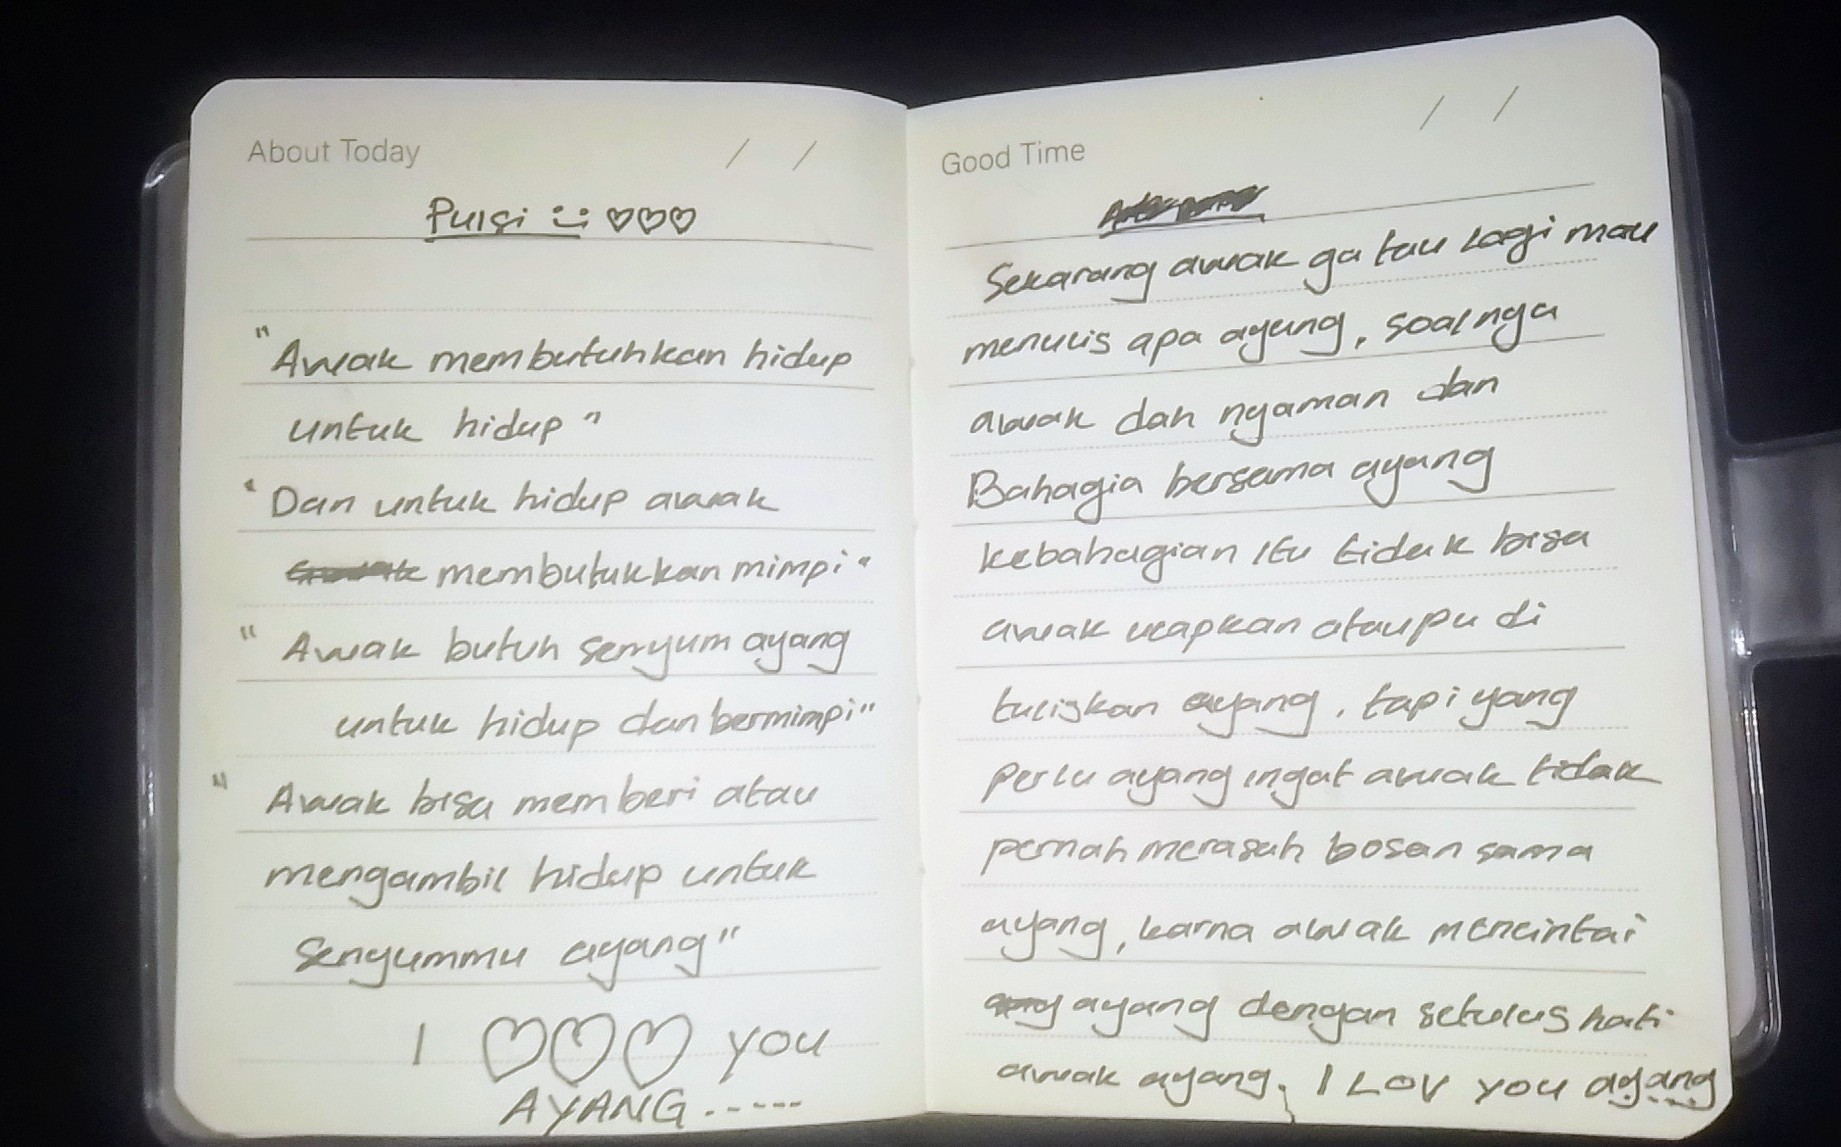 About Today / /
Puisi :) ♡♡♡
"Awak membutuhkan hidup
untuk hidup"
"Dan untuk hidup awak
membutukkan mimpi"
"Awak butuh senyum ayang
untuk hidup dan bermimpi"
"Awak bisa memberi atau
mengambil hidup untuk
Senyummu ayang"
I ♡♡♡ you
AYANG-----
Good Time / /
Sekarang awak ga tau lagi mau
menulis apa ayang, soalnya
awak dah nyaman dan
Bahagia bersama ayang
kebahagian itu tidak bisa
awak ucapkan ataupu di
tuliskan ayang, tapi yang
perlu ayang ingat awak tidak
pernah merasah bosan sama
ayang, karna awak mencintai
ayang dengan setulus hati
awak ayang. I Lov you ayang